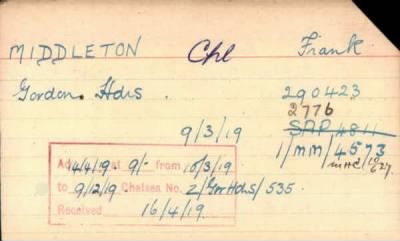 MIDDLETON Chl Frank
Gordon. Hdrs. 290423
2776
9/3/19 SAP 4811
1/MM/4573
Ad 14/4/19 at 9/- from 10/3/19
to 9/12/19 Chelsea No. 2/Gor Hds/535.
Received 16/4/19.